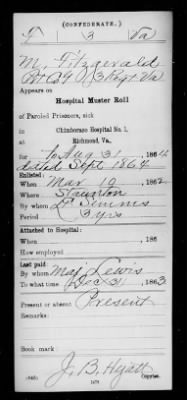 (CONFEDERATE.)
F 3 Va
M. Fitzgerald
Pvt Co G, 3 Regt Va
Appears on
Hospital Muster Roll
of Paroled Prisoners, sick
in Chimborazo Hospital No. 1,
Richmond, Va.,
for to Aug 31, 1864
dated Sept 1864
Enlisted:
When Mar 19, 1862
Where Staunton
By whom L. Simms
Period 3 yrs
Attached to Hospital:
When , 186
How employed
Last paid:
By whom Maj Lewis
To what time Dec 31, 1863
Present or absent Present
Remarks:
Book mark:
J. B. Hyatt
Copyist.